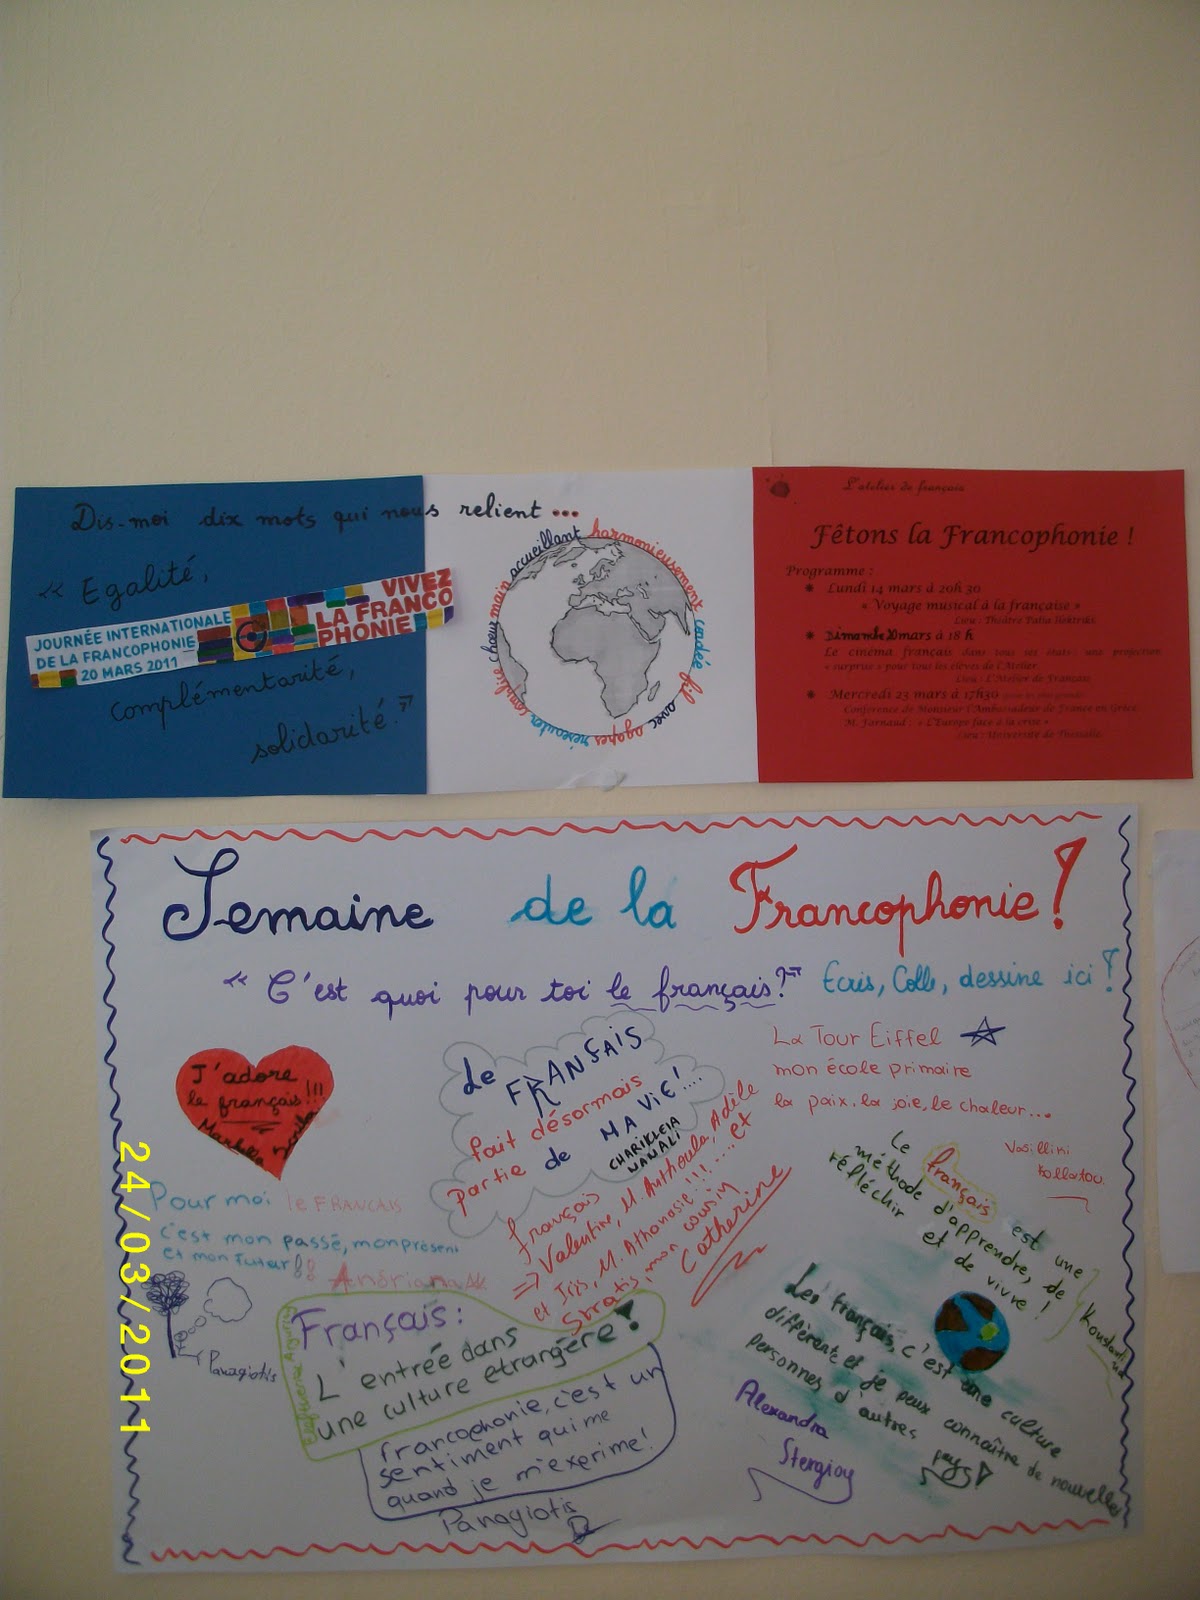 Dis-moi dix mots qui nous relient...
« Egalité,
JOURNÉE INTERNATIONALE
DE LA FRANCOPHONIE
20 MARS 2011
VIVEZ
LA FRANCO
PHONIE
complémentarité,
solidarité. »
accueillant harmonieusement cordée fil avec agapes réseauter complice chœur main
L'atelier de français
Fêtons la Francophonie !
Programme :
Lundi 14 mars à 20h 30
« Voyage musical à la française »
Lieu : Théâtre Palia Ilektriki
Dimanche 20 mars à 18 h
Le cinéma français dans tous ses états : une projection
« surprise » pour tous les élèves de l'Atelier
Lieu : L'Atelier de Français
Mercredi 23 mars à 17h30
Conférence de Monsieur l'Ambassadeur de France en Grèce
M. Farnaud : « L'Europe face à la crise »
Lieu : Université de Thessalie
Semaine de la Francophonie !
« C'est quoi pour toi le français ? » Ecris, Colle, dessine ici !
J'adore
le français !!!
Le FRANÇAIS
fait désormais
partie de MA VIE !....
CHARIKLEIA
NANALI
La Tour Eiffel
mon école primaire
la paix, la joie, le chaleur...
Vasiliki
Kollatou
français
=> Valentine, M. Anthoula, Adèle
et Iris, M. Athanasie !!! .... et
Stratis, mon cousin
Catherine
Le français est une
méthode d'apprendre, de
réfléchir et de vivre !
Pour moi le FRANCAIS
c'est mon passé, mon présent
et mon futur !!
Andriana
Panagiotis
Français :
L'entrée dans
une culture etrangère !
francophonie, c'est un
sentiment qui me
quand je m'exprime !
Panagiotis
Les français, c'est une culture
différente et je peux connaître de nouvelles
personnes d'autres pays !
Alexandra
Stergiou
24/03/2011